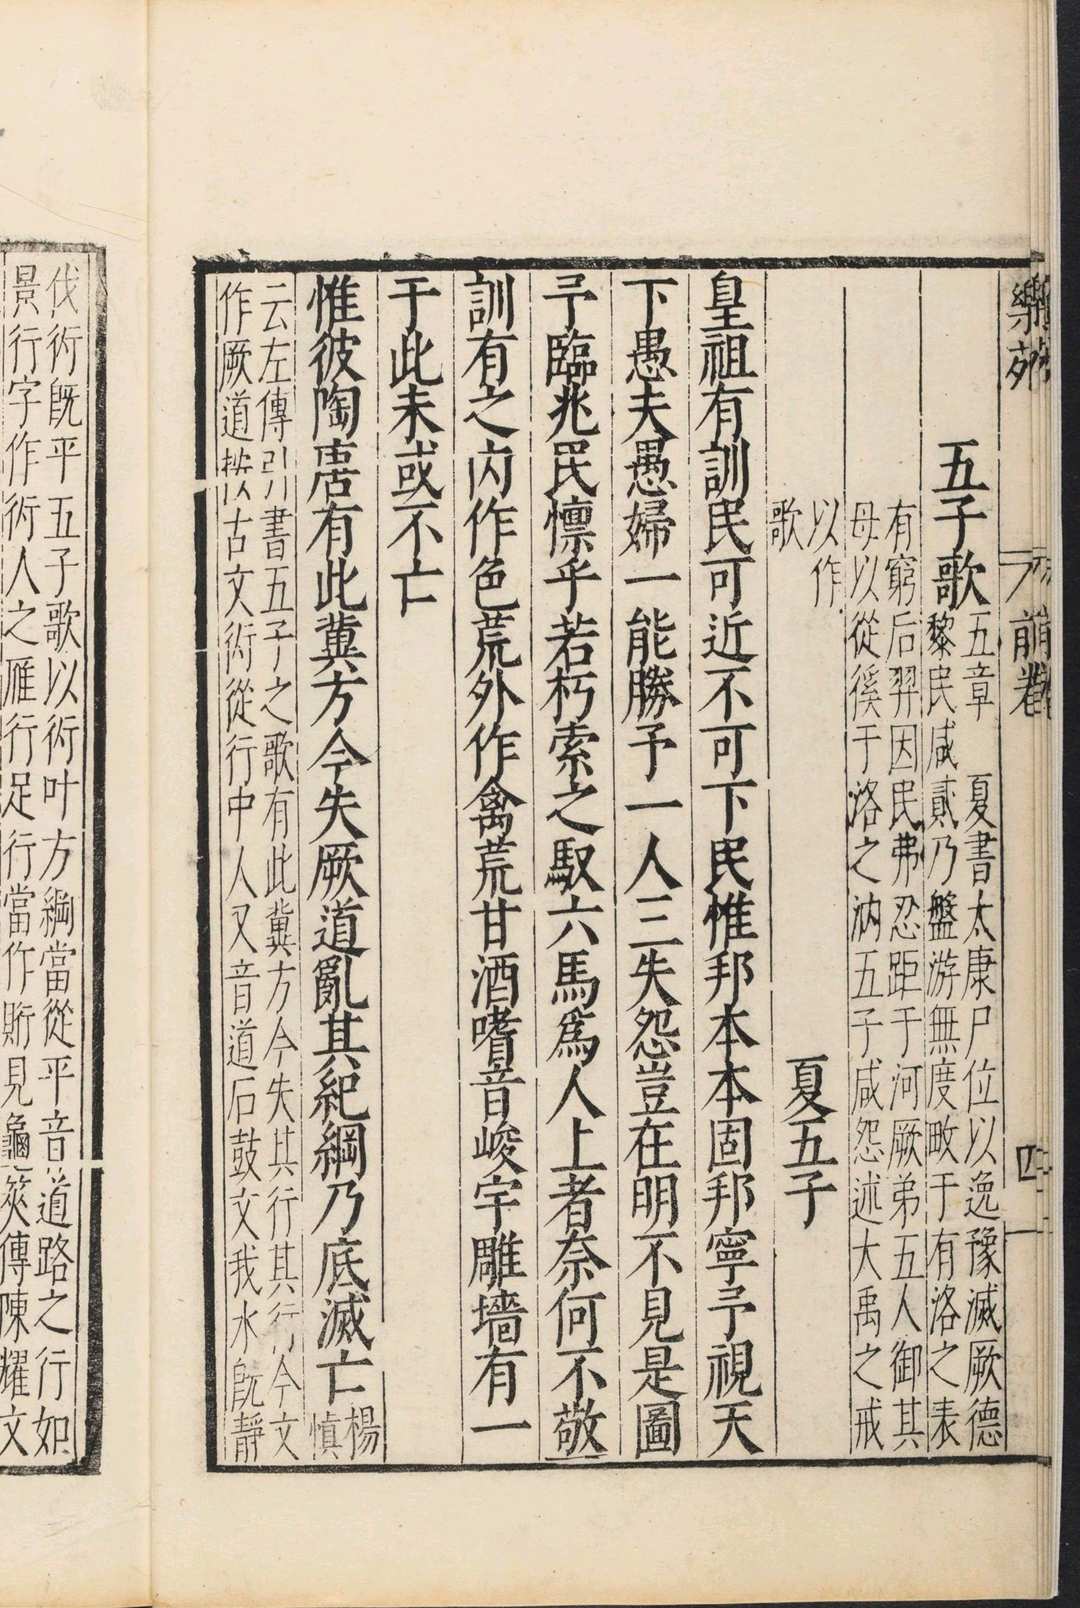 樂苑
前卷
四
五子歌
五章 夏書太康尸位以逸豫滅厥德
黎民咸貳乃盤游無度畋于有洛之表
有窮后羿因民弗忍距于河厥弟五人御其
母以從徯于洛之汭五子咸怨述大禹之戒
以作
歌
夏五子
皇祖有訓民可近不可下民惟邦本本固邦寧予視天
下愚夫愚婦一能勝予一人三失怨豈在明不見是圖
予臨兆民懍乎若朽索之馭六馬為人上者奈何不敬
訓有之内作色荒外作禽荒甘酒嗜音峻宇雕墻有一
于此未或不亡
惟彼陶唐有此冀方今失厥道亂其紀綱乃底滅亡
楊
慎
云左傳引書五子之歌有此冀方今失其行其行今文
作厥道按古文衍從行中人又音道石鼓文我水既靜
我術既平五子歌以術叶方綱當從平音道路之行如
景行字作術人之雁行足行當作䯒見龜筴傳陳耀文